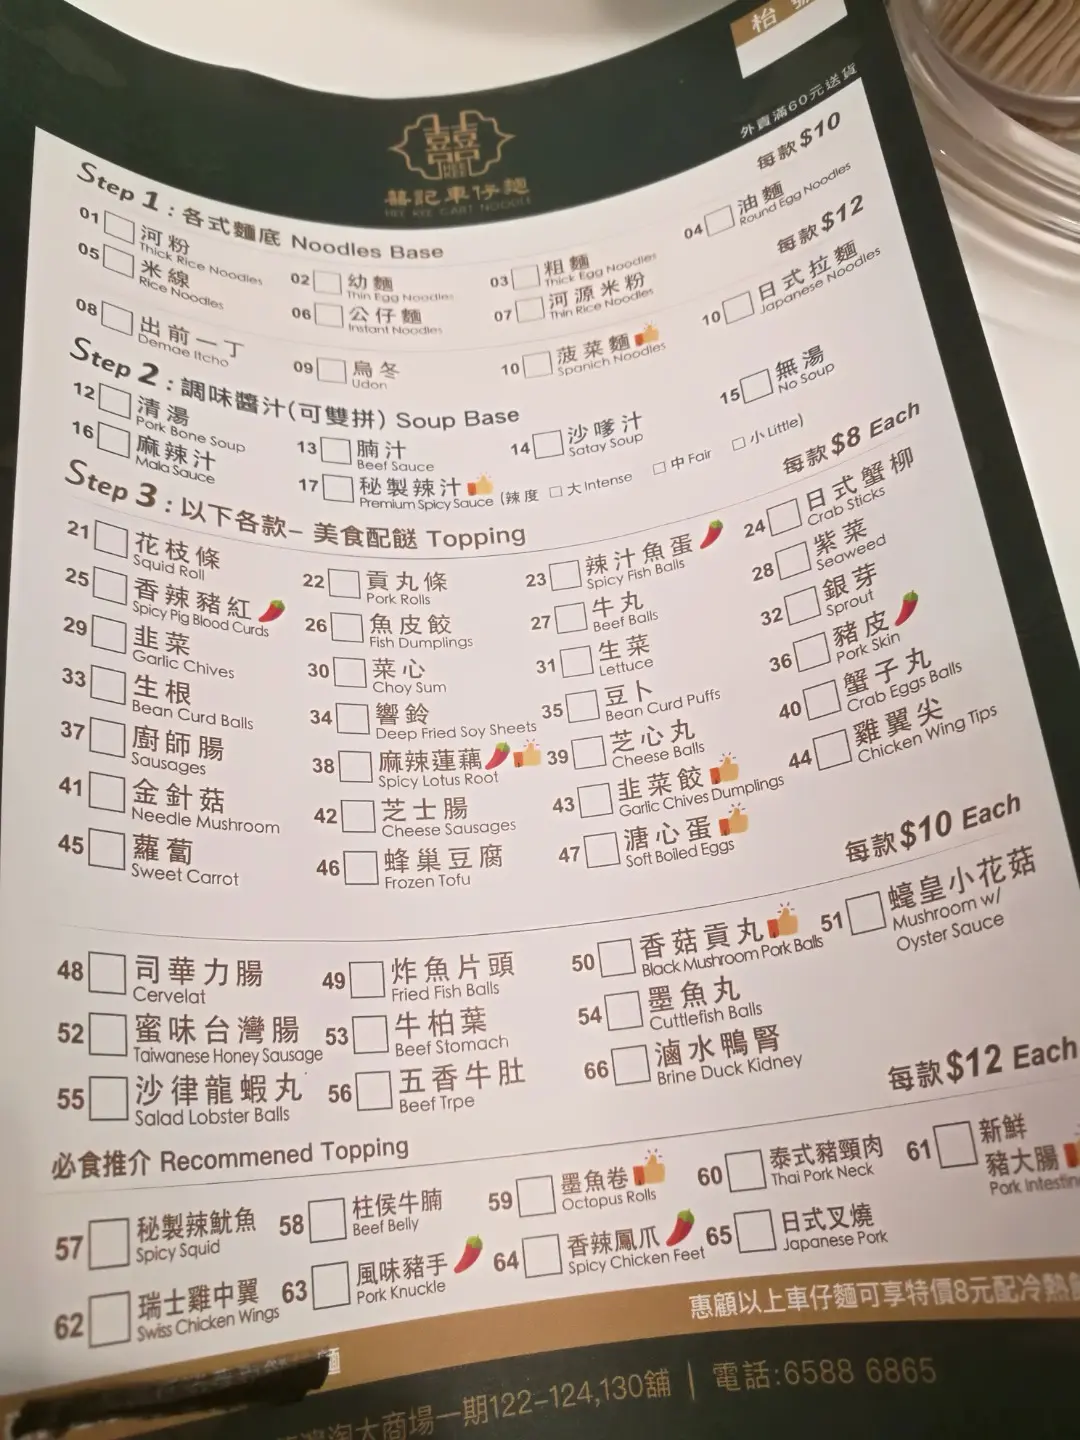 枱號
外賣滿60元送貨
囍記車仔麵
HEE KEE CART NOODLE
Step 1 : 各式麵底 Noodles Base 每款$10
01 河粉 Thick Rice Noodles 02 幼麵 Thin Egg Noodles 03 粗麵 Thick Egg Noodles 04 油麵 Round Egg Noodles
05 米線 Rice Noodles 06 公仔麵 Instant Noodles 07 河源米粉 Thin Rice Noodles
每款$12
08 出前一丁 Demae Itcho 09 烏冬 Udon 10 菠菜麵 Spanich Noodles 10 日式拉麵 Japanese Noodles
Step 2 : 調味醬汁(可雙拼) Soup Base
12 清湯 Pork Bone Soup 13 腩汁 Beef Sauce 14 沙嗲汁 Satay Soup 15 無湯 No Soup
16 麻辣汁 Mala Sauce 17 秘製辣汁 Premium Spicy Sauce (辣度 大 Intense 中 Fair 小 Little)
Step 3 : 以下各款– 美食配餸 Topping 每款$8 Each
21 花枝條 Squid Roll 22 貢丸條 Pork Rolls 23 辣汁魚蛋 Spicy Fish Balls 24 日式蟹柳 Crab Sticks
25 香辣豬紅 Spicy Pig Blood Curds 26 魚皮餃 Fish Dumplings 27 牛丸 Beef Balls 28 紫菜 Seaweed
29 韭菜 Garlic Chives 30 菜心 Choy Sum 31 生菜 Lettuce 32 銀芽 Sprout
33 生根 Bean Curd Balls 34 響鈴 Deep Fried Soy Sheets 35 豆卜 Bean Curd Puffs 36 豬皮 Pork Skin
37 廚師腸 Sausages 38 麻辣蓮藕 Spicy Lotus Root 39 芝心丸 Cheese Balls 40 蟹子丸 Crab Eggs Balls
41 金針菇 Needle Mushroom 42 芝士腸 Cheese Sausages 43 韭菜餃 Garlic Chives Dumplings 44 雞翼尖 Chicken Wing Tips
45 蘿蔔 Sweet Carrot 46 蜂巢豆腐 Frozen Tofu 47 溏心蛋 Soft Boiled Eggs
每款$10 Each
48 司華力腸 Cervelat 49 炸魚片頭 Fried Fish Balls 50 香菇貢丸 Black Mushroom Pork Balls 51 蠔皇小花菇 Mushroom w/ Oyster Sauce
52 蜜味台灣腸 Taiwanese Honey Sausage 53 牛柏葉 Beef Stomach 54 墨魚丸 Cuttlefish Balls
55 沙律龍蝦丸 Salad Lobster Balls 56 五香牛肚 Beef Trpe 66 滷水鴨腎 Brine Duck Kidney
必食推介 Recommened Topping 每款$12 Each
57 秘製辣魷魚 Spicy Squid 58 柱侯牛腩 Beef Belly 59 墨魚卷 Octopus Rolls 60 泰式豬頸肉 Thai Pork Neck 61 新鮮豬大腸 Pork Intestin
62 瑞士雞中翼 Swiss Chicken Wings 63 風味豬手 Pork Knuckle 64 香辣鳳爪 Spicy Chicken Feet 65 日式叉燒 Japanese Pork
惠顧以上車仔麵可享特價8元配冷熱飲
麵
淘大商場一期122–124,130舖 | 電話:6588 6865